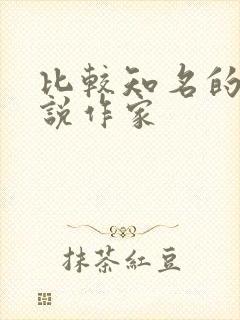 比較知名的
說作家
抹茶紅豆